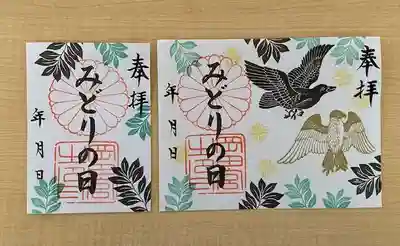 奉拝
みどりの日
年 月 日
奉拝
みどりの日
年 月 日